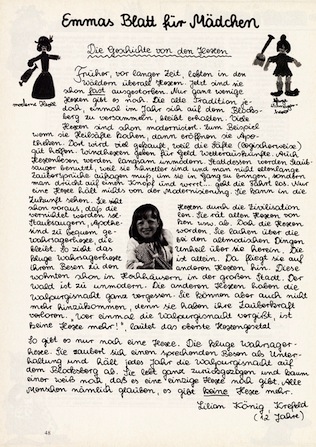 Emmas Blatt für Mädchen
Die Geschichte von den Hexen
Früher, vor langer Zeit, lebten in den
Wäldern überall Hexen. Jetzt sind sie
schon fast ausgestorben. Nur ganz wenige
Hexen gibt es noch. Die alte Tradition je-
doch, einmal im Jahr sich auf dem Blocks-
berg zu versammeln, bleibt erhalten. Viele
Hexen sind schon modernisiert. Zum Beispiel
wenn sie Heilsäfte backen, dann eröffnen sie Apo-
theken. Dort wird viel gekauft, weil die Säfte (logischerweise)
gut helfen. Windhexen geben für Geld Wetterauskünfte. Auch
Hexenbesen werden langsam unmodern. Stattdessen werden Staub-
sauger benutzt, weil sie schneller sind und man nicht ellenlange
Zaubersprüche aufsagen muß, um sie in Gang zu bringen, sondern
man drückt auf einen Knopf und wrrrt... geht die Fahrt los. Nur
eine Hexe hält nichts von der Modernisierung. Sie kann in die
Zukunft sehen. Sie sieht
schon voraus, daß die
Hexen durch die Zivilisation
vernichtet werden
len. Sie rät allen Hexen von
Staubsaugern, Apothe-
usw. ab. Doch die Hexen
sind zu bequem ge-
worden. Sie lachen über die
Wahrsagerhexe, die
bei den altmodischen Dingen
bleibt. So zieht das
Unheil über sie herein. Die
kluge Wahrsagerhexe
ist allein. Da fliegt sie auf
ihrem Besen zu den
anderen Hexen hin. Diese
wohnten schon in Hochhäusern in der großen Stadt. Der
Wald ist zu unmodern. Die anderen Hexen haben die
Walpurgisnacht ganz vergessen. Sie können aber auch nicht
mehr hinzukommen, denn sie haben ihre Zauberkraft
verloren. "Wer einmal die Walpurgisnacht vergißt, ist
keine Hexe mehr!", lautet das oberste Hexengesetz!
So gibt es nur noch eine Hexe. Die kluge Wahrsager-
hexe. Sie zaubert sich einen sprechenden Besen als Unter-
haltung und hält jedes Jahr die Walpurgisnacht auf
dem Blocksberg ab. Sie lebt ganz zurückgezogen und kaum
einer weiß noch daß es eine einzige Hexe noch gibt. Alle
Menschen nämlich glauben, es gibt keine Hexe mehr.
Lilian König Krefeld
(12 Jahre)
moderne Hexe
48